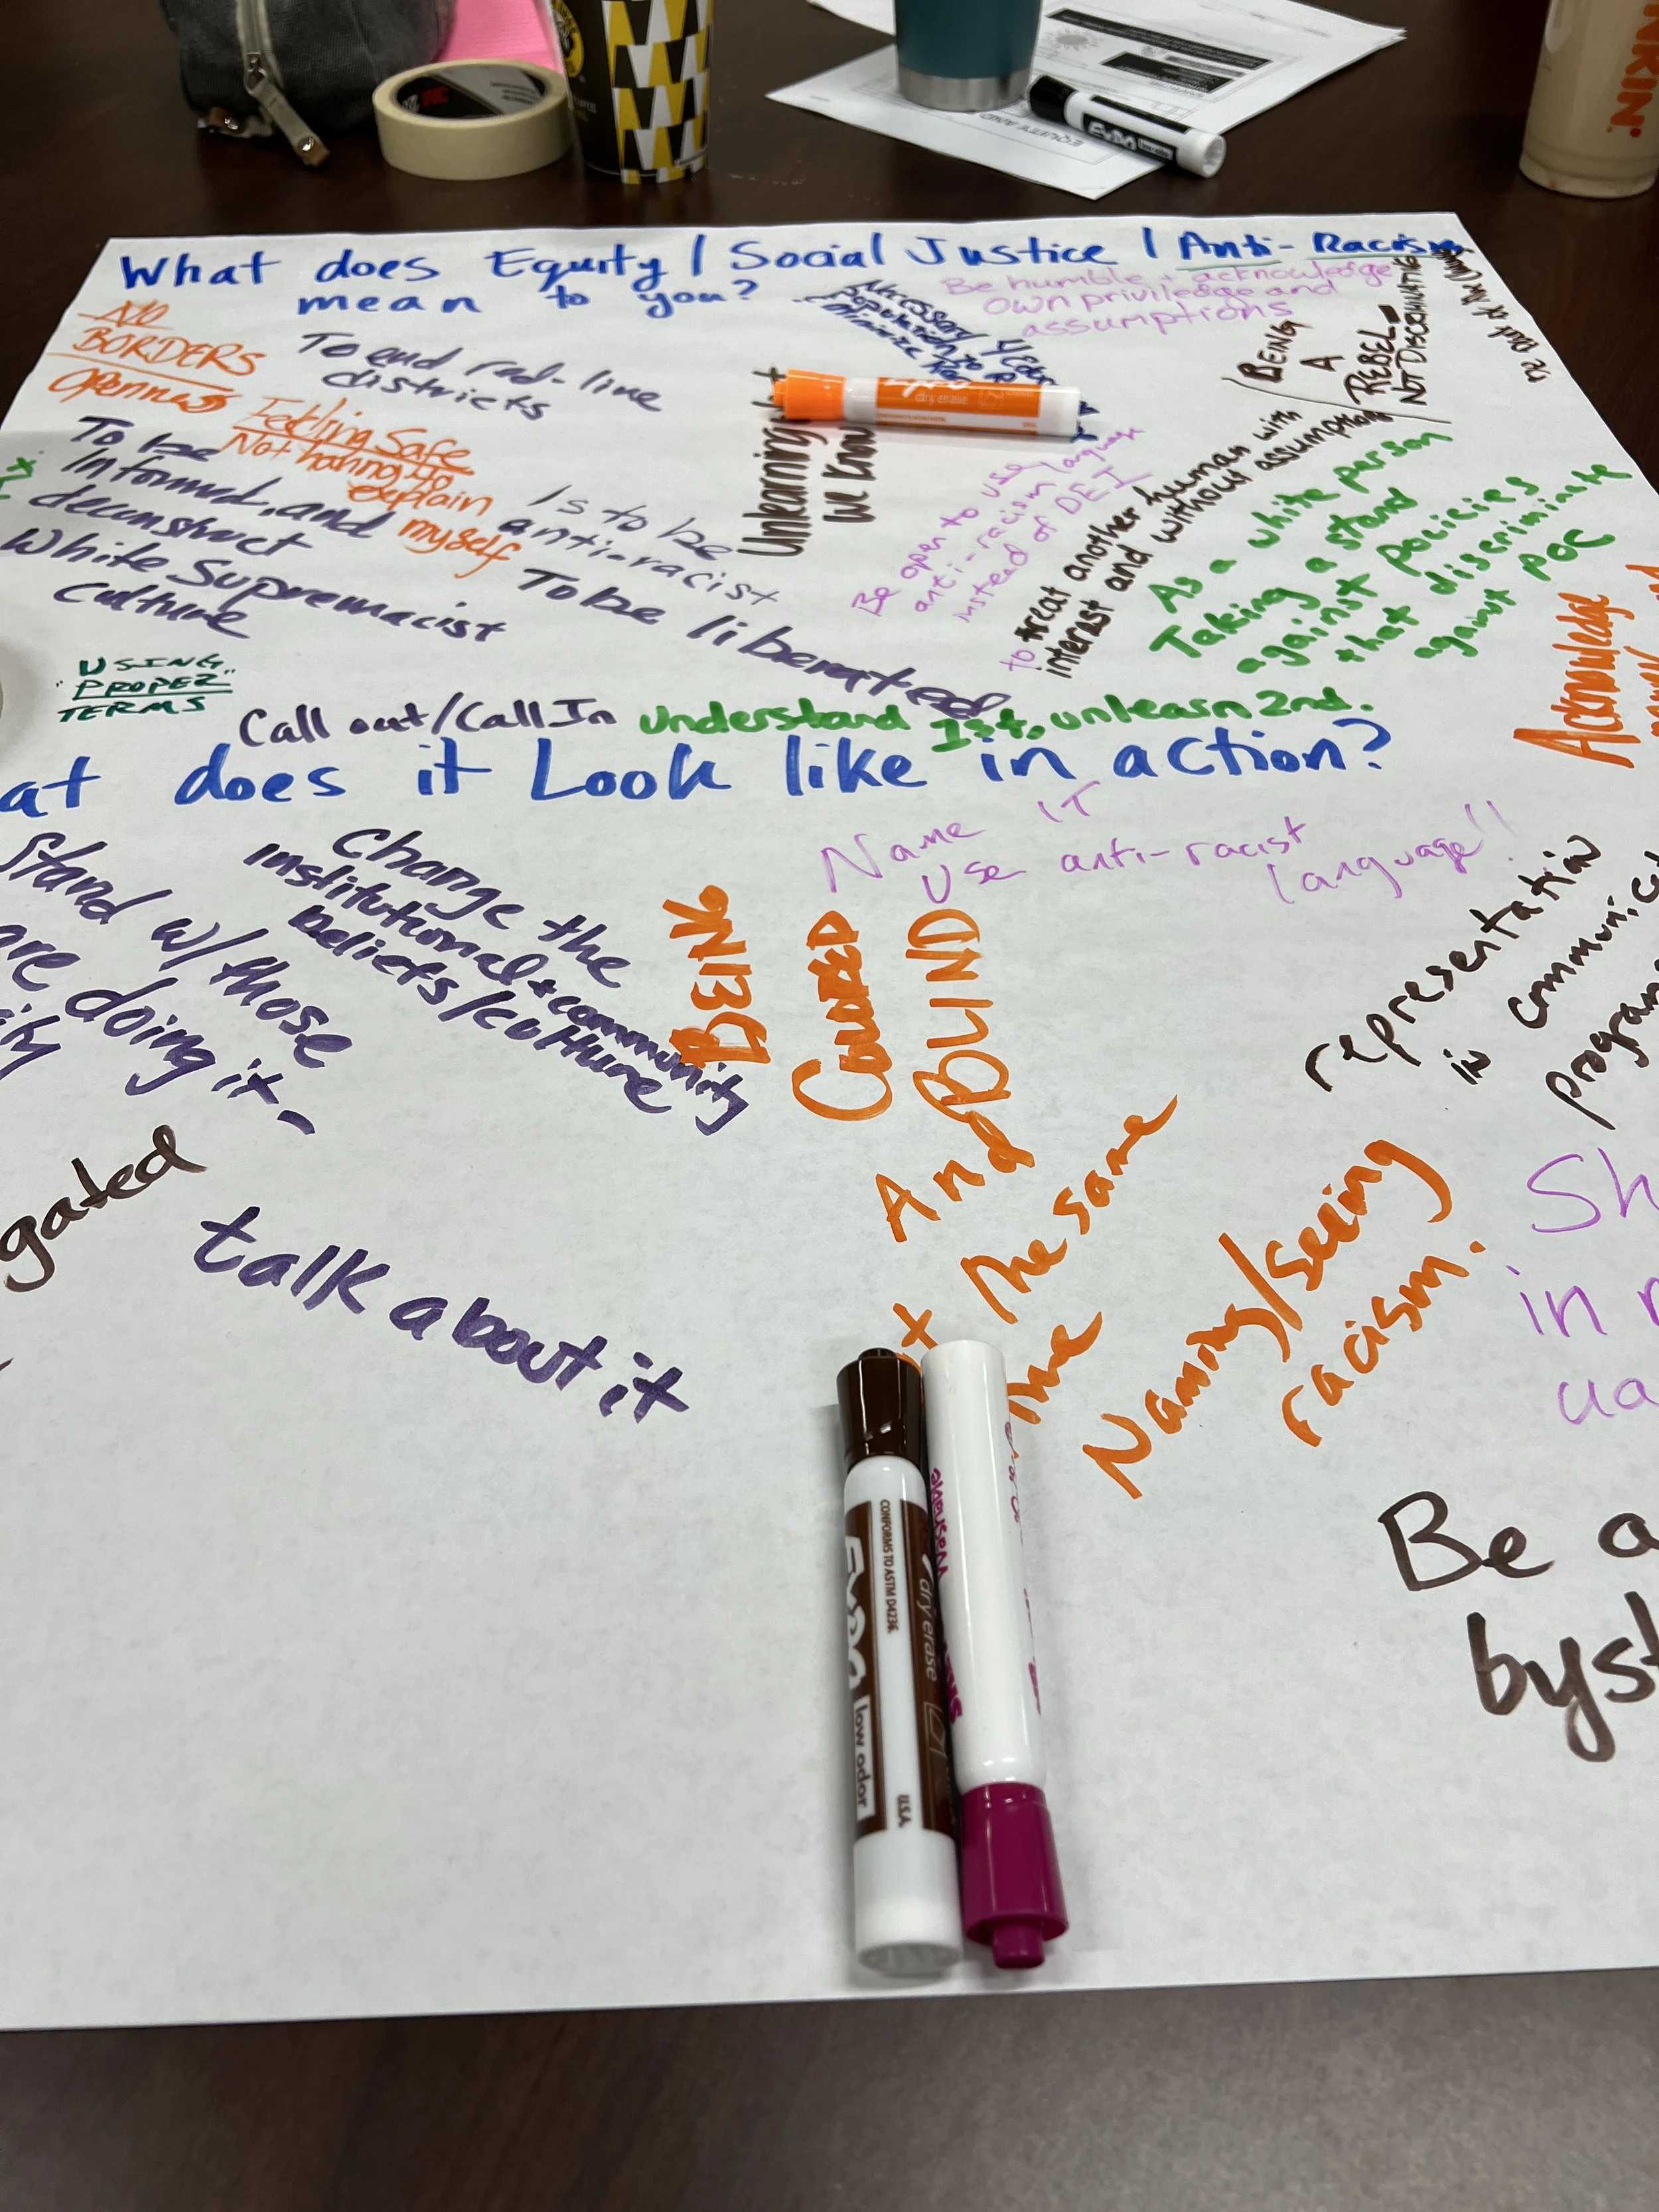 What does Equity / Social Justice / Anti-Racism
mean to you?
NO
BORDERS
Openness
To end red-line
districts
Feeling Safe
Not having to
explain
myself
To be
Informed, and
deconstruct
White Supremacist
Culture
Is to be
anti-racist
To be liberated
USING
"PROPER"
TERMS
Call out/Call In
Understand 1st, unlearn 2nd.
Necessary
population to
minimize
Be humble + acknowledge
own priviledge and
assumptions
Unlearning
we know
Be open to use language
anti-racism
instead of DEI
to treat another human with
interest and without assumption
(BEING
A
REBEL =
NOT DISCRIMINATING
As a white person
Taking a stand
against policies
that discriminate
against POC
Acknowledge
at does it Look like in action?
Stand w/ those
are doing it -
Change the
institutional + community
beliefs/culture
Name IT
Use anti-racist
language!!
BEING
COLORED
And BLIND
And
the same
the
Naming/Seeing
racism.
representation
in communic
program
gated
talk about it
Sh
in
ua
Be a
byst
EQUITY AND
EXPO
dry erase
CONFORMS TO ASTM D4236.
EXPO
dry erase
low odor
U.S.A.
NKIN'